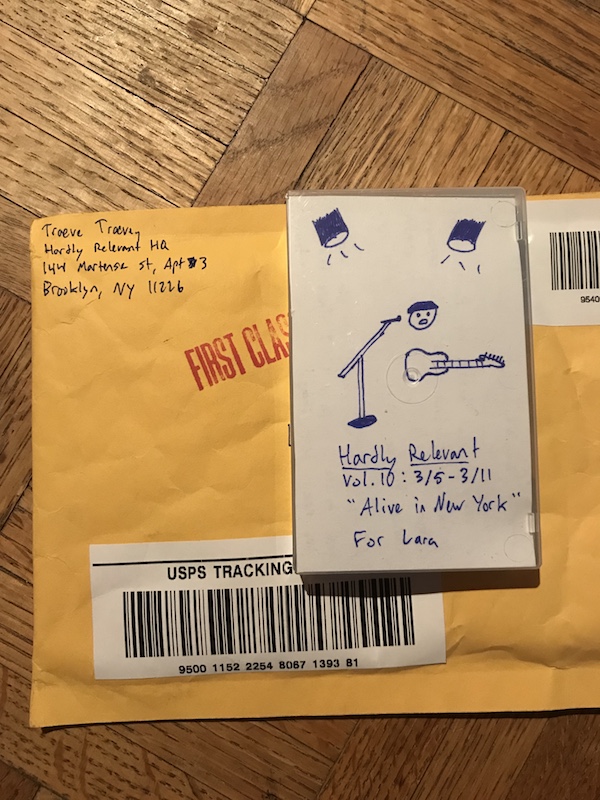 Hardly Relevant HQ
144 Martense St, Apt 3
Brooklyn, NY 11226
FIRST CLAS
9540
Hardly Relevant
Vol. 10 : 3/5 - 3/11
"Alive in New York"
For Lara
USPS TRACKING
9500 1152 2254 8067 1393 81